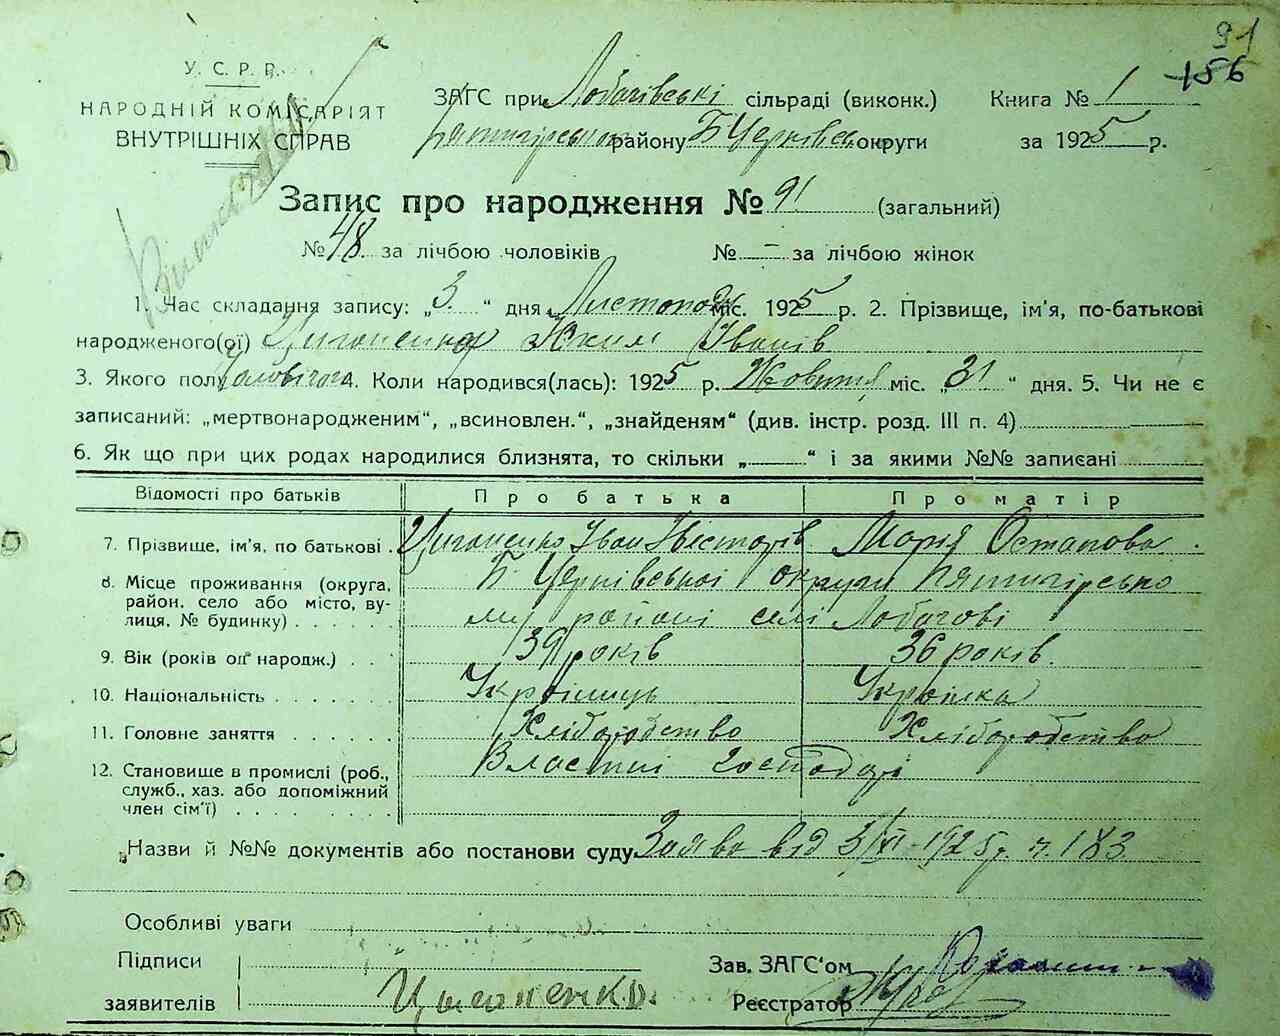 91
156
У. С. Р. Р.
НАРОДНІЙ КОМІСАРІЯТ
ВНУТРІШНІХ СПРАВ
ЗАГС при Лобачівські сільраді (виконк.) Книга № 1
району Б Церківськ округи за 1925 р.
Запис про народження № 91 (загальний)
№ 48 за лічбою чоловіків № – за лічбою жінок
1. Час складання запису: „3" дня Листопада міс. 1925 р. 2. Прізвище, ім'я, по-батькові
народженого(ої) Циганенко Яким Іванів
3. Якого полу Чоловічого 4. Коли народився(лась): 1925 р. Жовтня міс. „31" дня. 5. Чи не є
записаний: „мертвонародженим", „всиновлен.", „знайденям" (див. інстр. розд. III п. 4)
6. Як що при цих родах народилися близнята, то скільки „ " і за якими №№ записані
Відомості про батьків Про батька Про матір
7. Прізвище, ім'я, по батькові Циганенко Іван Несторів Марія Остапова
8. Місце проживання (округа, район, село або місто, вулиця, № будинку) Б Церківської округи Пятигірсько
му районі селі Лобачові
9. Вік (років от народж.) 39 років 36 років.
10. Національність Українець Українка
11. Головне заняття Хліборобство Хліборобство
12. Становище в промислі (роб., Властні господарі
служб., хаз. або допоміжний
член сім'ї)
Назви й №№ документів або постанови суду Заява від 3/XI-1925 р. ч. 183
Особливі уваги
Підписи Зав. ЗАГС'ом
заявителів Циганенко. Реєстратор